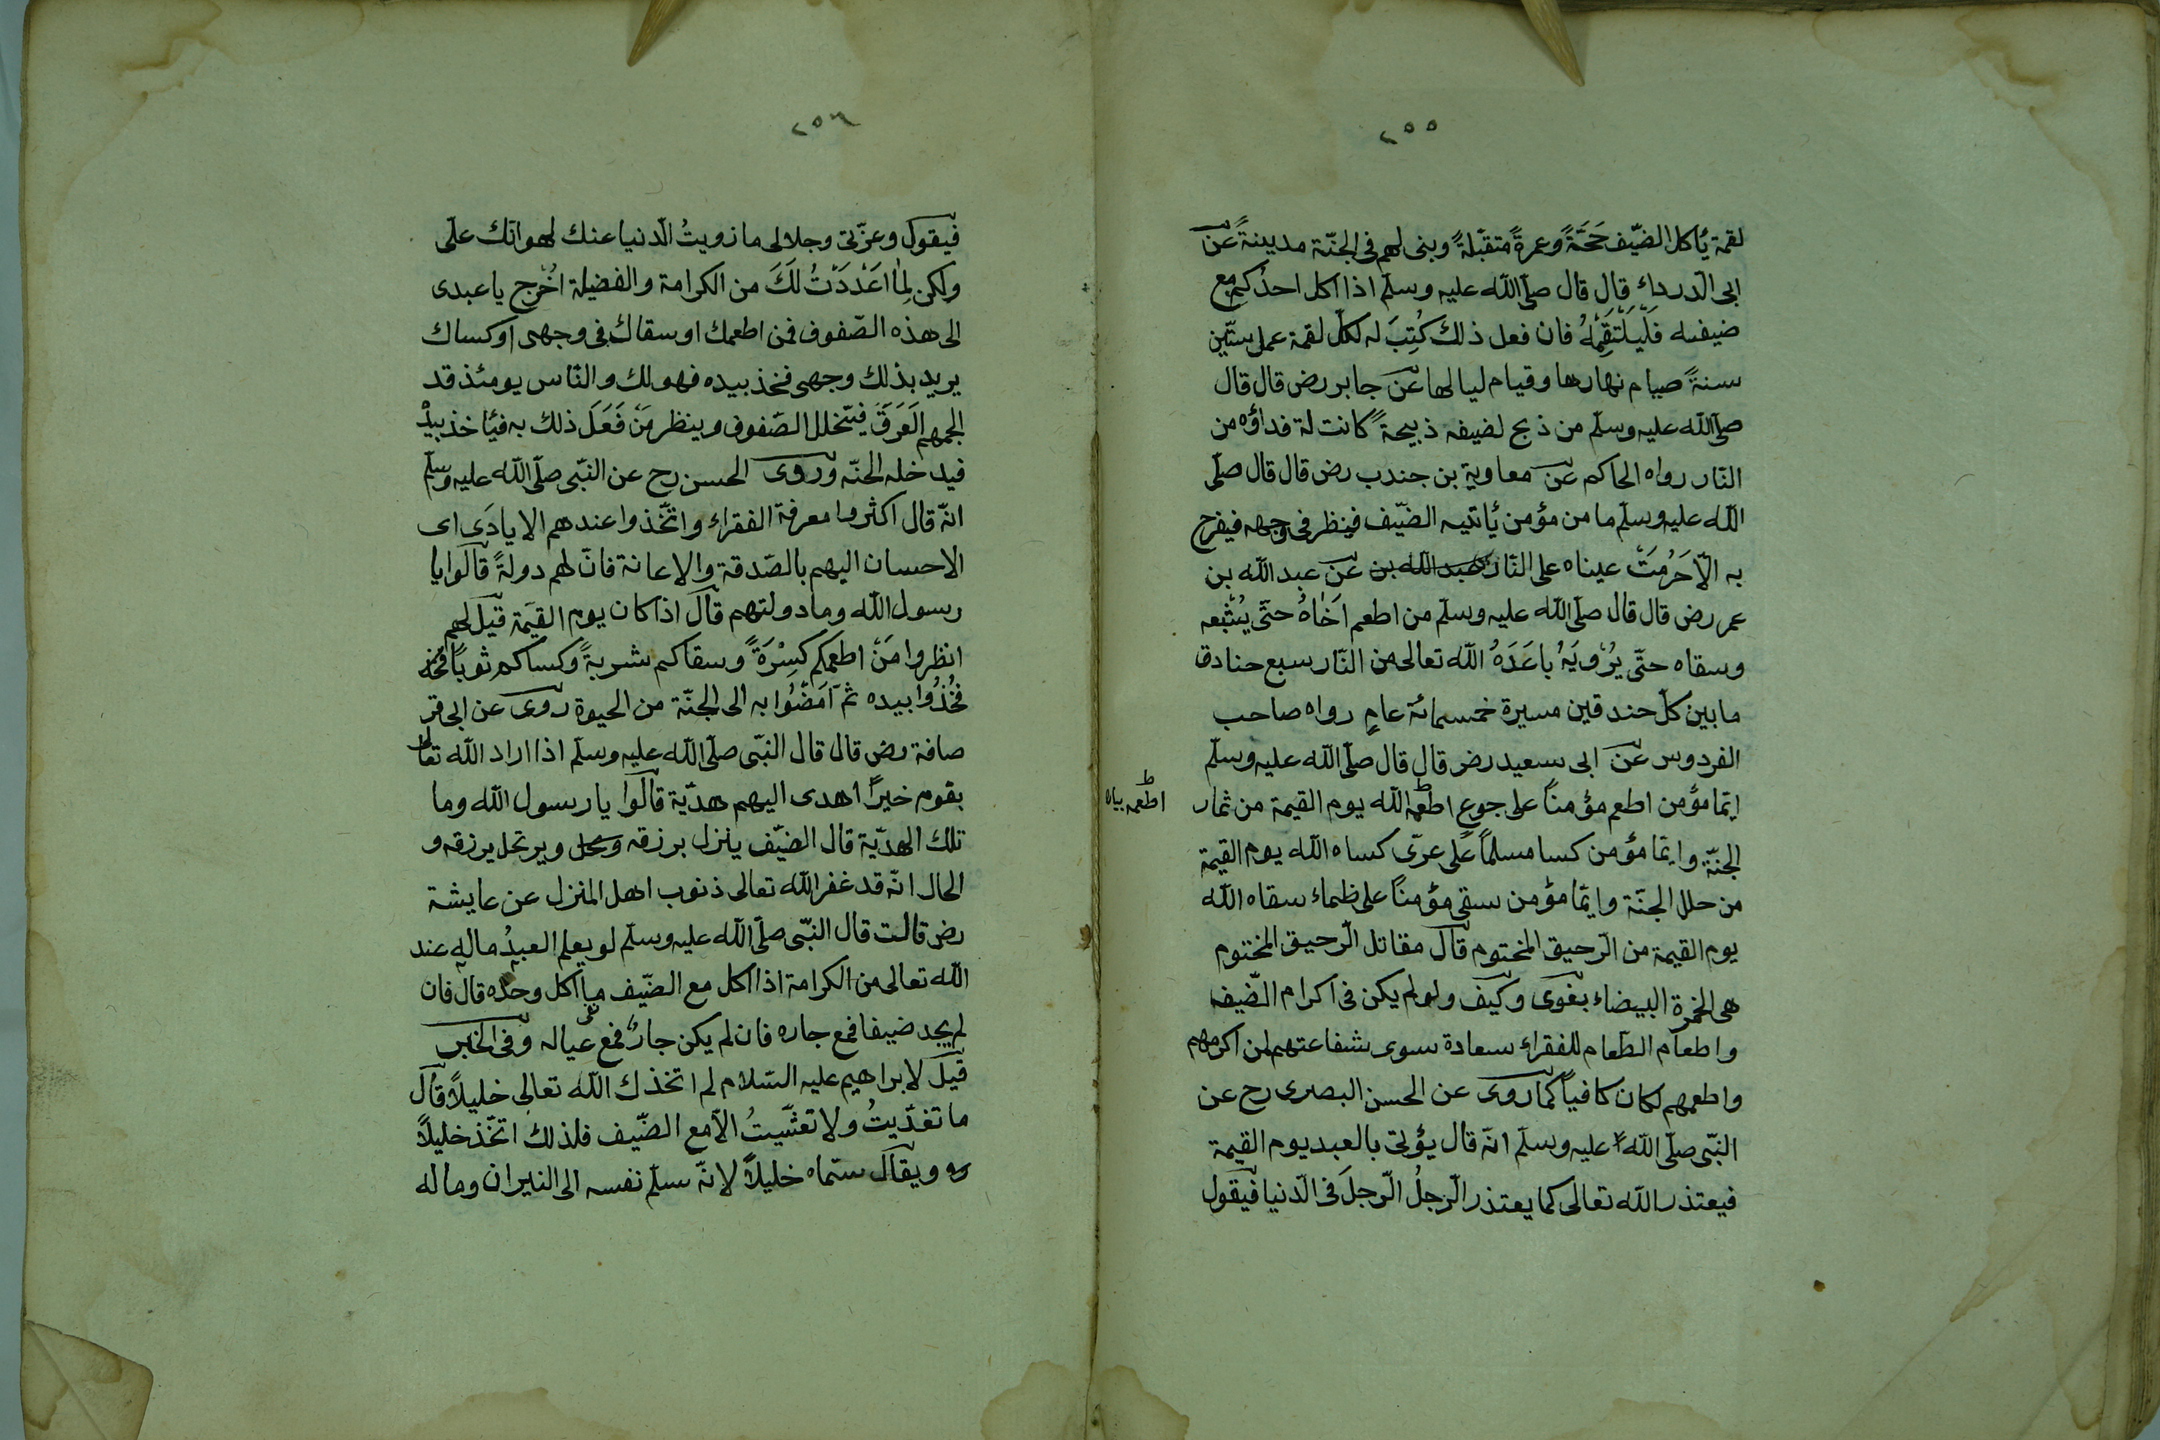 ٢٥٥
لقمة يأكل الضّيف حَجَّةً وعمرةً متقبّلةً وبنى لهم فى الجنّة مدينةً عن
ابى الدّرداء قال قال صلّى الله عليه وسلّم اذا اكل احدُكم مع
ضيفه فَلْيَلْتَقِمْهُ فان فعل ذلك كُتِبَ له لكلّ لقمة عمل ستّين
سنةً صيام نهارها وقيام لياليها عن جابر رض قال قال
صلّى الله عليه وسلّم من ذبح لضيفه ذبيحةً كانت له فداؤه من
النّار رواه الحاكم عن معاوية بن جندب رض قال قال صلّى
الله عليه وسلّم ما من مؤمن يأتيه الضّيف فينظر فى وجهه فيفرح
به الّا حَرُمَتْ عيناه على النّار عبد الله بن عن عبد الله بن
عمر رض قال قال صلّى الله عليه وسلّم من اطعم اَخَاهُ حتّى يُشْبِعه
وسقاه حتّى يُرْوِيَهُ باعَدَهُ الله تعالى من النّار سبع خنادق
ما بين كلّ خندقين مسيرة خمسمائة عامٍ رواه صاحب
الفردوس عن ابى سعيد رض قال قال صلّى الله عليه وسلّم
ايّما مؤمن اطعم مؤمناً على جوعٍ اطعمه الله يوم القيمة من ثمار
اطعمه بيان
الجنّة وايّما مؤمن كسا مسلماً على عرّى كساه الله يوم القيمة
من حلل الجنّة وايّما مؤمن سقى مؤمناً على ظماء سقاه الله
يوم القيمة من الرّحيق المختوم قال مقاتل الرّحيق المختوم
هى الخمرة البيضاء بغوى وكيف ولو لم يكن فى اكرام الضّيف
واطعام الطّعام للفقراء سعادة سوى شفاعتهم لمن اكرمهم
واطعمهم لكان كافياً كما روى عن الحسن البصرى رح عن
النّبى صلّى الله عليه وسلّم انّه قال يؤتى بالعبد يوم القيمة
فيعتذر الله تعالى كما يعتذر الرّجلُ الرّجلَ فى الدّنيا فيقول
٢٥٦
فيقول وعزّتى وجلالى ما زويتُ الدّنيا عنك لهوانك علىّ
ولكن لِمَا اَعْدَدْتُ لَكَ من الكرامة والفضيلة اُخْرج يا عبدى
الى هذه الصّفوف فمن اطعمك او سقاك فى وجهى او كساك
يريد بذلك وجهى فخذ بيده فهو لك والنّاس يومئذ قد
الجمهم العَرَقُ فيتخلل الصّفوف وينظر مَنْ فَعَلَ ذلك به فيأخذ بيده
فيدخله الجنّة وروى الحسن رح عن النّبى صلّى الله عليه وسلّم
انّه قال اكثروا معرفة الفقراء واتّخذوا عندهم الايادَى اى
الاحسان اليهم بالصّدقة والاعانة فانّ لهم دولةً قالوا يا
رسول الله وما دولتهم قال اذا كان يوم القيمة قيل لهم
انظروا مَنْ اطعمكم كِسْرَةً وسقاكم شربةً وكساكم ثوباً فخذ
فَخُذُوا بيده ثمّ اَمضُوا به الى الجنّة من الحيوة روى عن ابى قر
صافة رض قال قال النّبى صلّى الله عليه وسلّم اذا اراد الله تعالى
بقوم خيراً اهدى اليهم هديّة قالوا يا رسول الله وما
تلك الهديّة قال الضّيف ينزل برزقه ويرتحل برزقه و
الحال انّه قد غفر الله تعالى ذنوب اهل المنزل عن عايشة
رض قالت قال النّبى صلّى الله عليه وسلّم لو يعلم العبدُ ماله عند
الله تعالى من الكرامة اذا اكل مع الضّيف ما اكل وحده قال فان
لم يجد ضيفا فمع جاره فان لم يكن جارٌ فمع عياله وفى الخبر
قيل لابراهيم عليه السّلام لم اتخذك الله تعالى خليلاً قال
ما تغدّيتُ ولا تعشّيتُ الّا مع الضّيف فلذلك اتخّذ خليلاً
ويقال سمّاه خليلاً لانّه سلّم نفسه الى النيران وماله